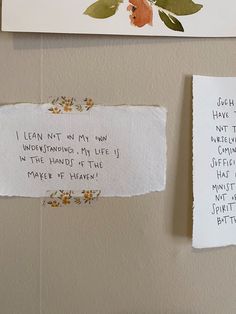 I LEAN NOT ON MY OWN
UNDERSTANDING. MY LIFE IS
IN THE HANDS OF THE
MAKER OF HEAVEN!
SUCH
HAVE
NOT T
OURSELV
COMIN
SUFFICI
HAS
MINIST
NOT OF
SPIRIT
BOTH